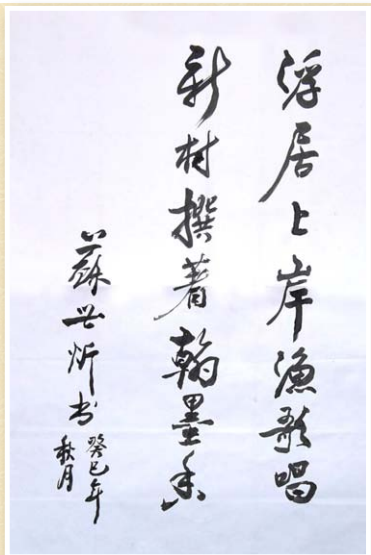 浮居上岸渔歌唱
新村撰著翰墨香
苏世炘书
癸巳年
秋月